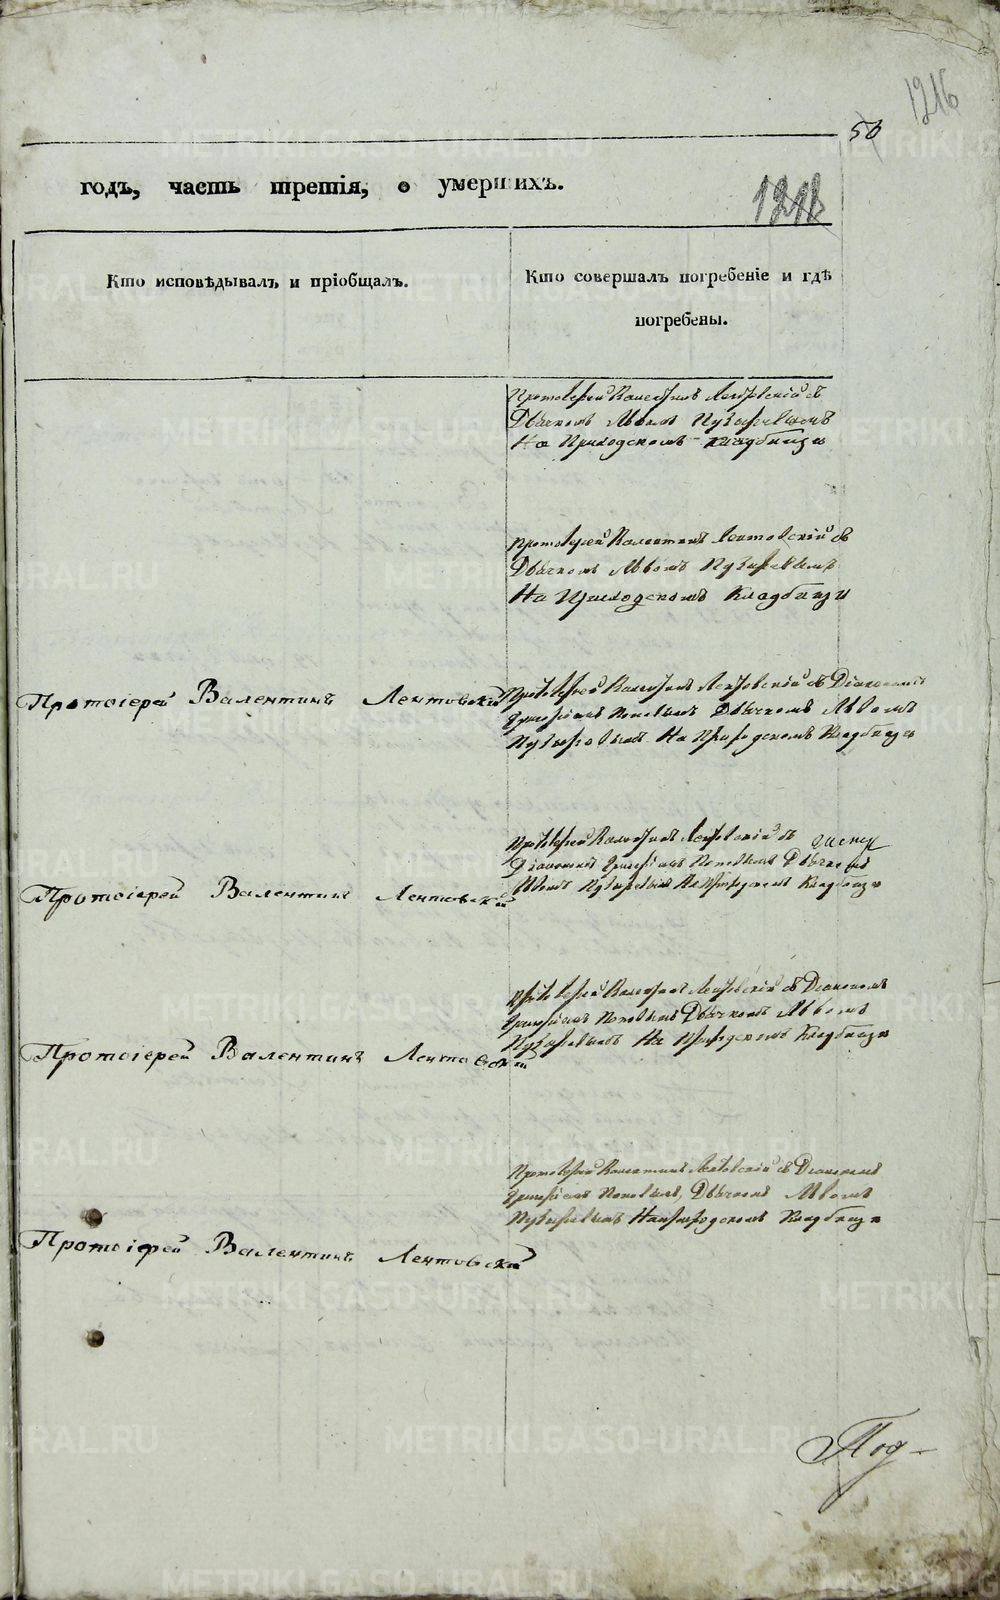 1216
50
годъ, часть третія, о умершихъ.
Кто исповѣдывалъ и пріобщалъ.
Кто совершалъ погребеніе и гдѣ
погребены.
Протоіерей Валентинъ Лентовскій съ
Дьячкомъ Львомъ Пузыревымъ
На Приходскомъ кладбищи
Протоіерей Валентинъ Лентовскій съ
Дьячкомъ Львомъ Пузыревымъ
На Приходскомъ Кладбищи
Протоіерей Валентинъ Лентовскій
Протоіерей Валентинъ Лентовскій съ Діакономъ
Григоріемъ Поповымъ Дьячкомъ Львомъ
Пузыревымъ На Приходскомъ Кладбищи
Протоіерей Валентинъ Лентовскій
Протоіерей Валентинъ Лентовскій съ
Діакономъ Григоріемъ Поповымъ Дьячкомъ
Львомъ Пузыревымъ На Приходскомъ Кладбищи
Протоіерей Валентинъ Лентовскій
Протоіерей Валентинъ Лентовскій съ Діакономъ
Григоріемъ Поповымъ Дьячкомъ Львомъ
Пузыревымъ На Приходскомъ Кладбищи
Протоіерей Валентинъ Лентовскій
Протоіерей Валентинъ Лентовскій съ Діакономъ
Григоріемъ Поповымъ, Дьячкомъ Львомъ
Пузыревымъ На приходскомъ Кладбищи
Под-
METRIKI.GASO-URAL.RU